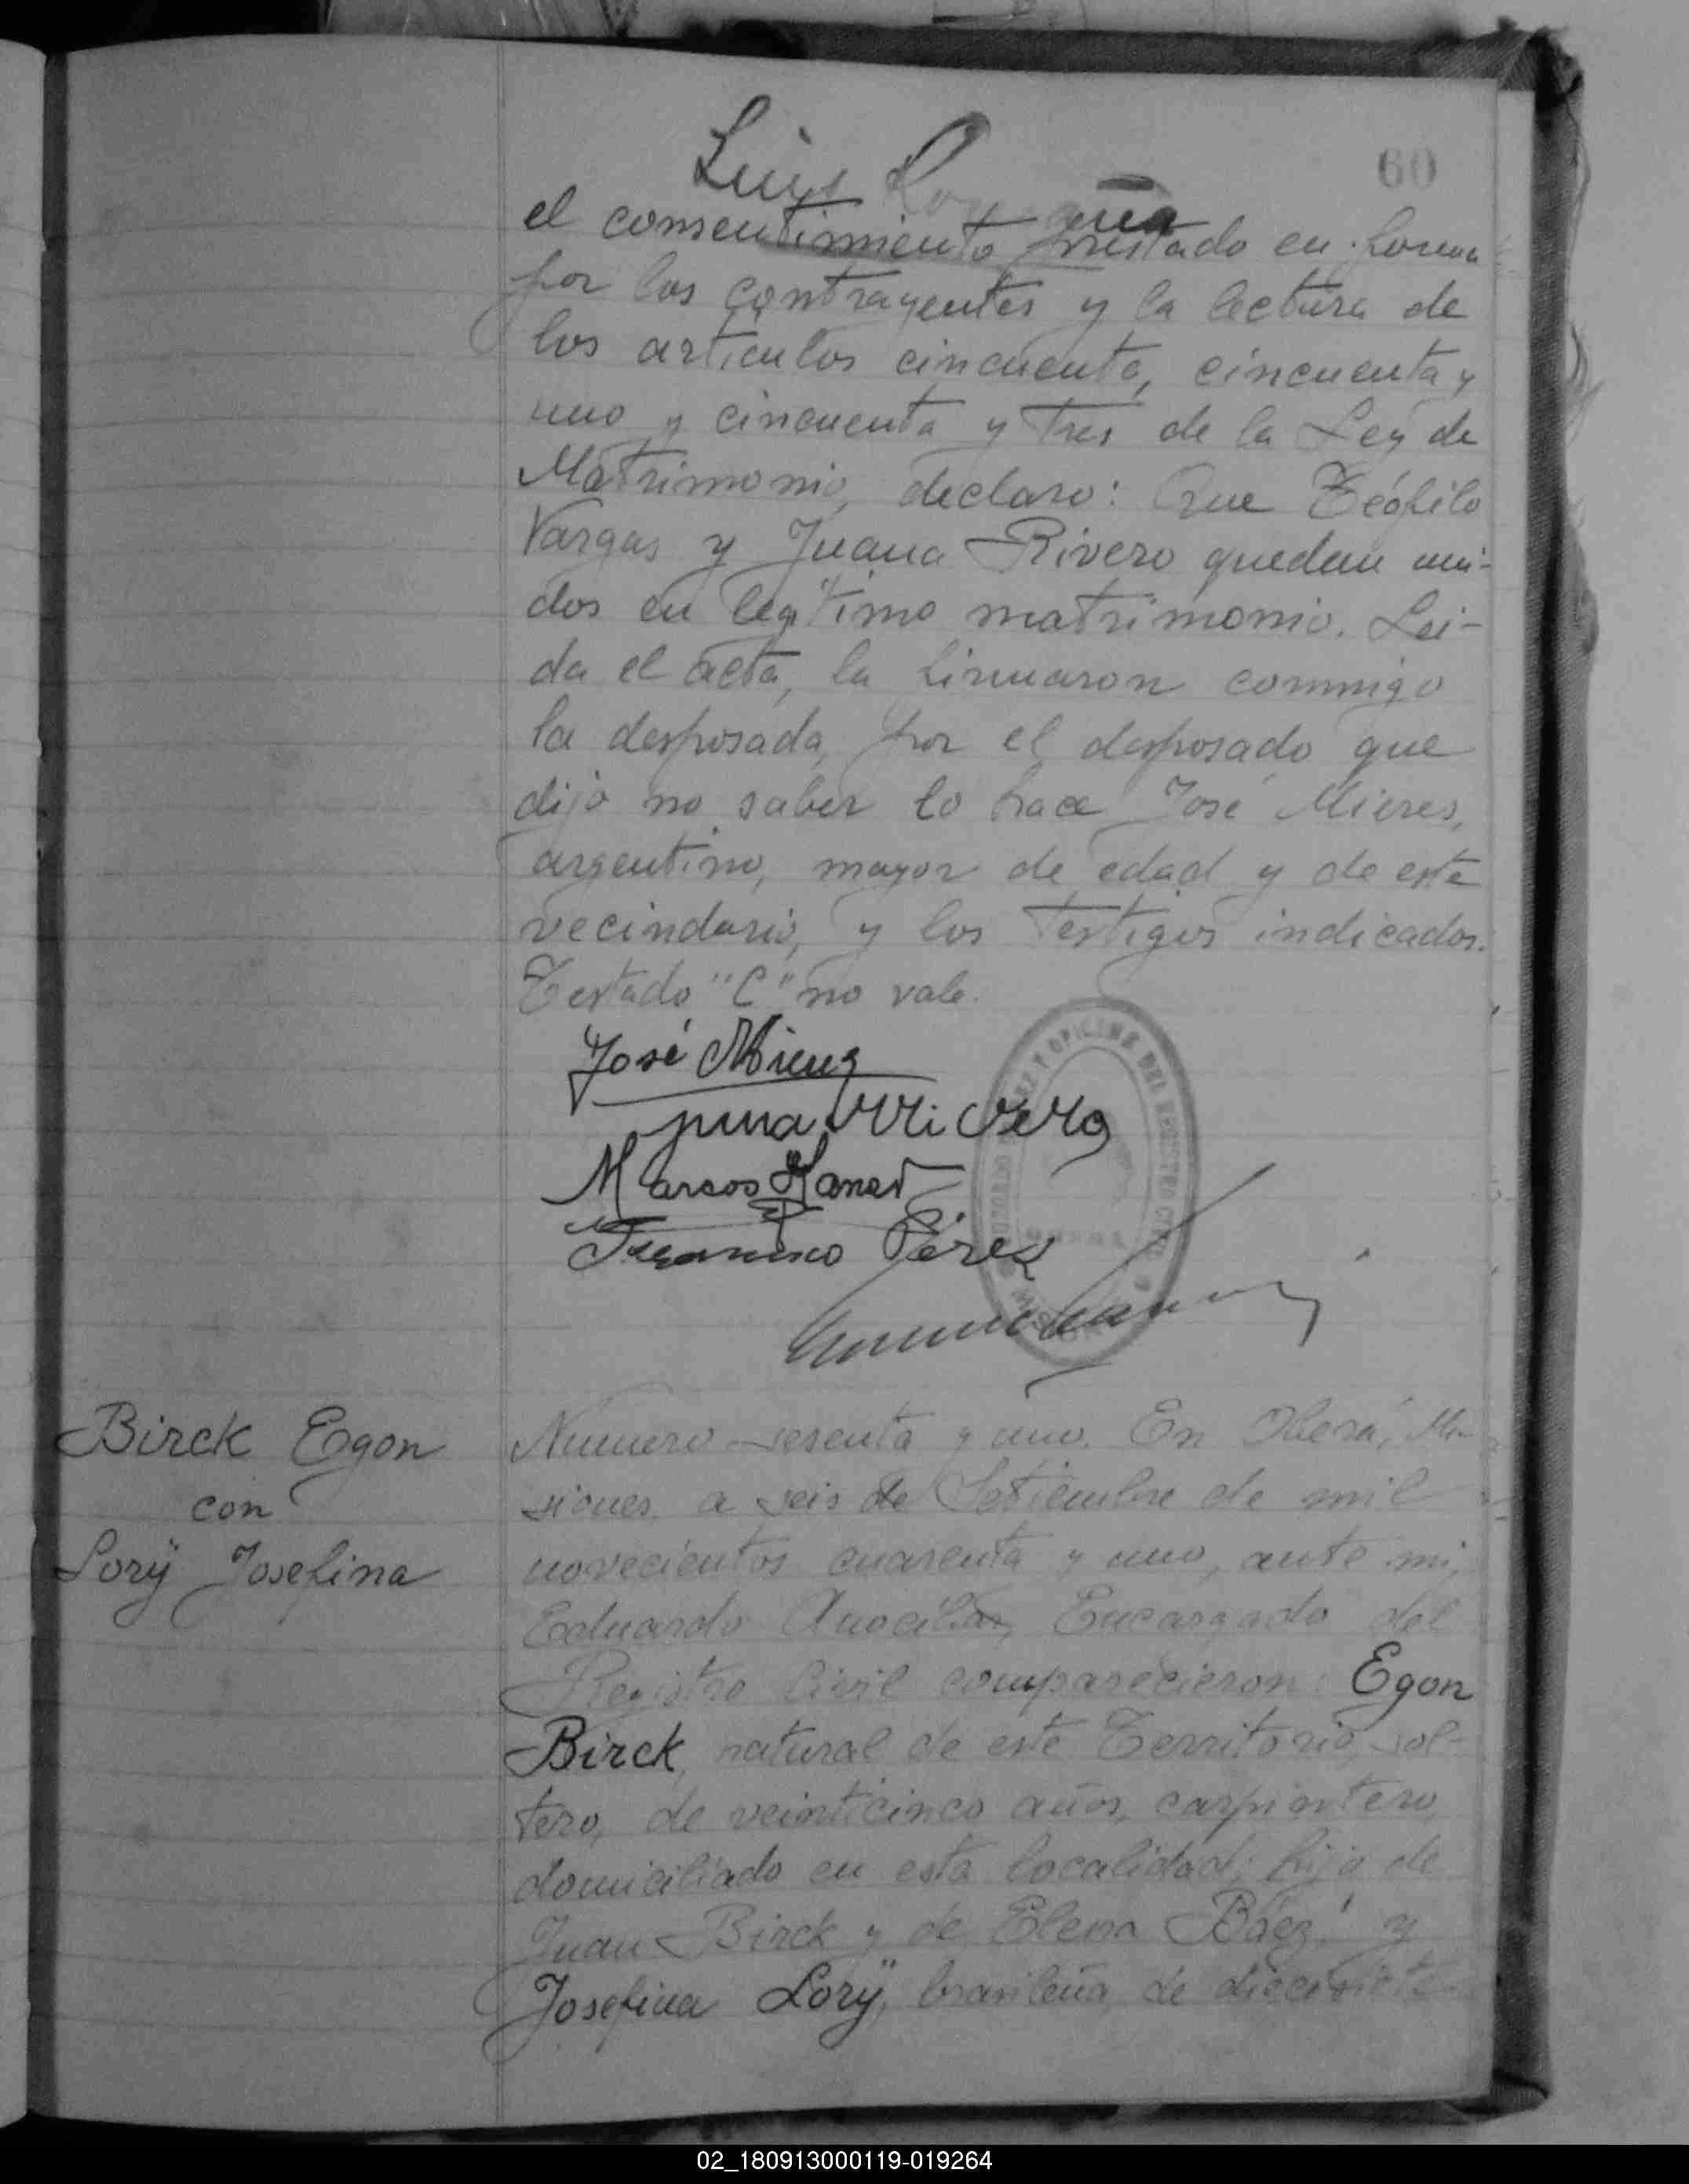 60
Luis
el consentimiento prestado en forma
por los contrayentes y la lectura de
los articulos cincuenta, cincuenta y
uno y cincuenta y tres de la Ley de
Matrimonio, declaro: Que Teófilo
Vargas y Juana Rivero quedan uni-
dos en legítimo matrimonio. Lei-
da el acta, la firmaron conmigo
la desposada, por el desposado que
dijo no saber lo hace José Mieres,
argentino, mayor de edad y de este
vecindario, y los testigos indicados.
Testado "C" no vale.
José Mieres
Marcos
Pérez
Birck Egon
con
Lorÿ Josefina
Numero sesenta y uno. En Oberá, Mi-
siones, a seis de Setiembre de mil
novecientos cuarenta y uno, ante mi,
Eduardo Encargado del
Registro Civil comparecieron: Egon
Birck, natural de este Territorio, sol-
tero, de veinticinco años, carpintero,
domiciliado en esta localidad; hijo de
Juan Birck y de Elena Báez; y
Josefina Lorÿ, brasileña, de diecisiete
02_180913000119-019264